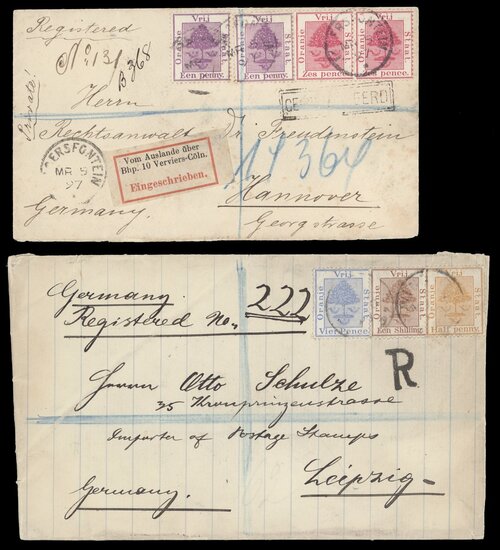 Registered
No 131
B 368
Private!
Vrij
Oranje Staat.
Een penny.
Vrij
Oranje Staat.
Een penny.
Vrij
Oranje Staat.
Zes pence.
Vrij
Oranje Staat.
Zes pence.
Herrn
Rechtsanwalt Dr Freudenstein
Vom Auslande über
Bhp. 10 Verviers-Cöln.
Eingeschrieben.
MR 5
97
17364
Hannover
Germany.
Georgstrasse
Germany.
Registered No. 222
Vrij
Oranje Staat.
Vier Pence.
Vrij
Oranje Staat.
Een Shilling.
Vrij
Oranje Staat.
Half penny.
R
Herrn Otto Schulze
35 Kronprinzenstrasse
Importer of Postage Stamps
Leipzig
Germany.